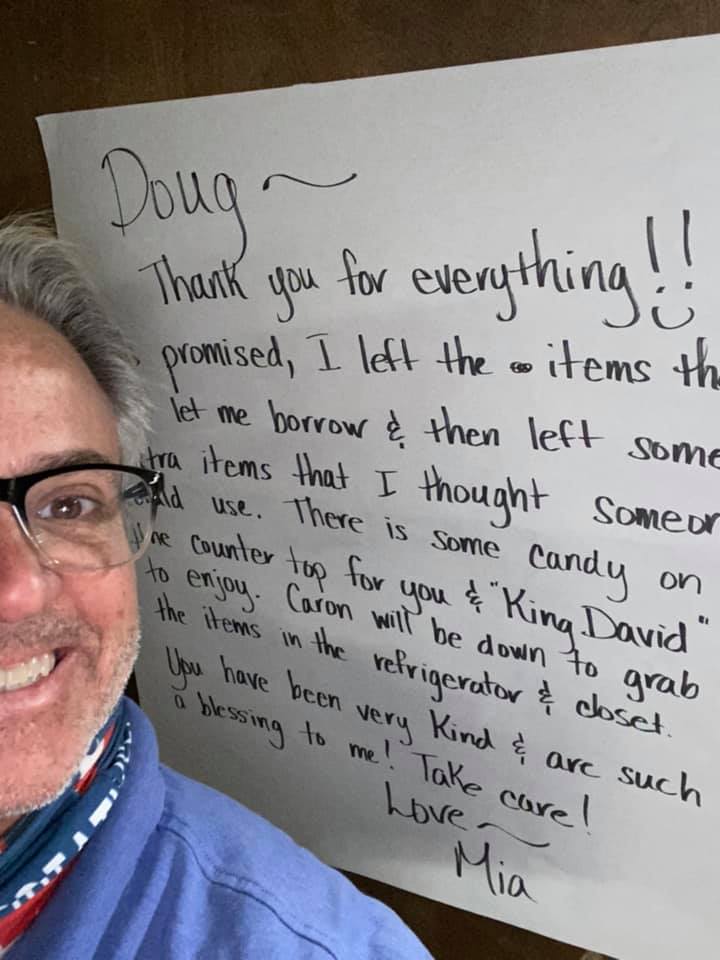 Doug ~
Thank you for everything!!
promised, I left the items th
let me borrow & then left some
tra items that I thought someon
use. There is some candy on
the counter top for you & "King David"
to enjoy. Caron will be down to grab
the items in the refrigerator & closet.
You have been very kind & are such
a blessing to me! Take care!
Love ~
Mia